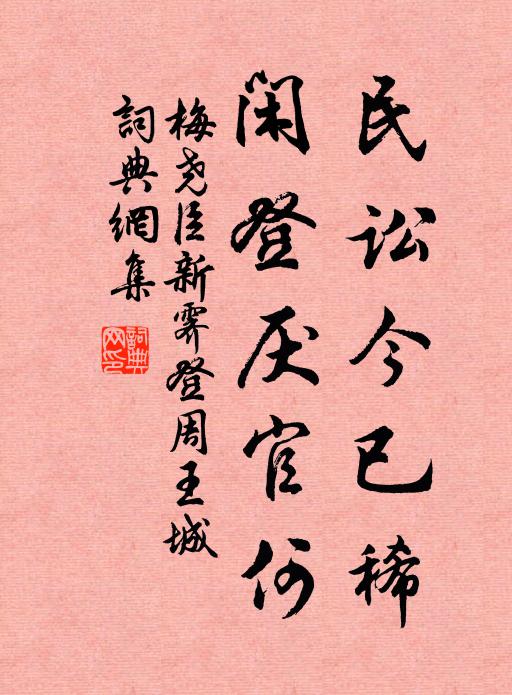 民讼今已稀
闲登厌官何
梅尧臣新霁登周王城
詞典網集
詞典网印